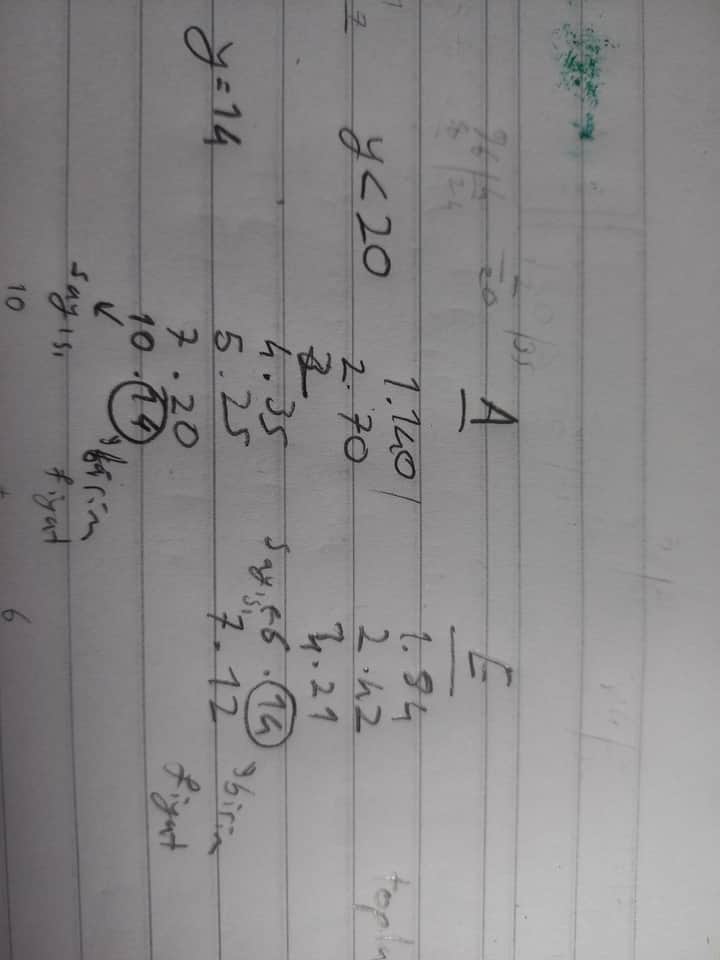 A E
1.140 1.84
y<20 2.70 2.42
4.21
4.35 sayısı 6.14
y=14 5.25 7.12 birim
7.20 fiyat
10.14
sayısı birim
fiyat
10 6